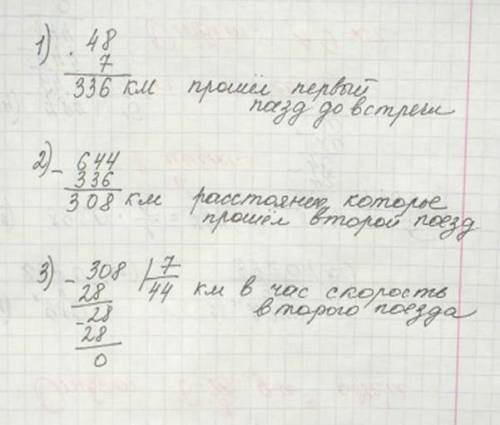 1) · 48
7
336 км прошёл первый
поезд до встречи
2) - 644
336
308 км расстояние которое
прошёл второй поезд
3) - 308 | 7
28 44 км в час скорость
- 28 второго поезда
28
0